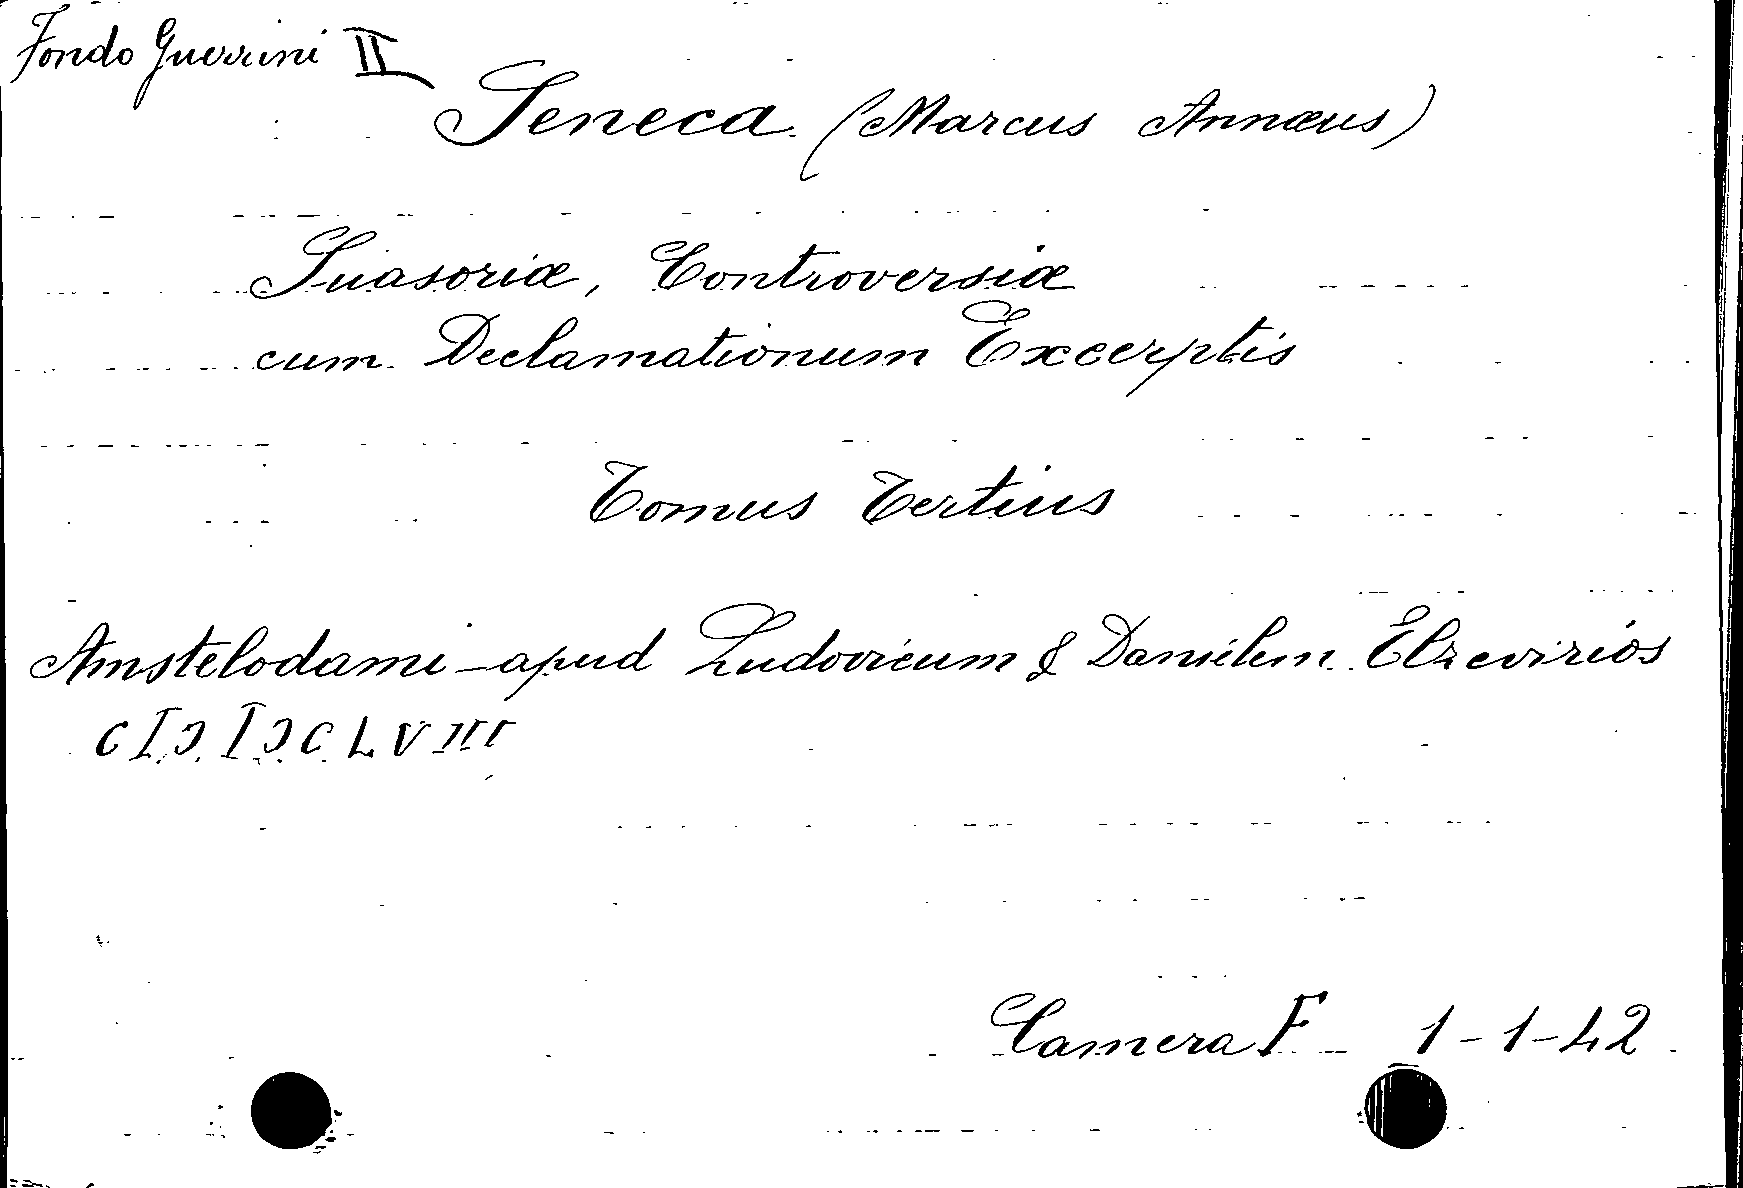 Fondo Guerrini II
Seneca (Marcus Annæus)
Suasoriæ, Controversiæ
cum Declamationum Excerptis
Tomus Tertius
Amstelodami - apud Ludovicum & Danielem Elzevirios
C I Ɔ I Ɔ C L V III
Camera F 1-1-42